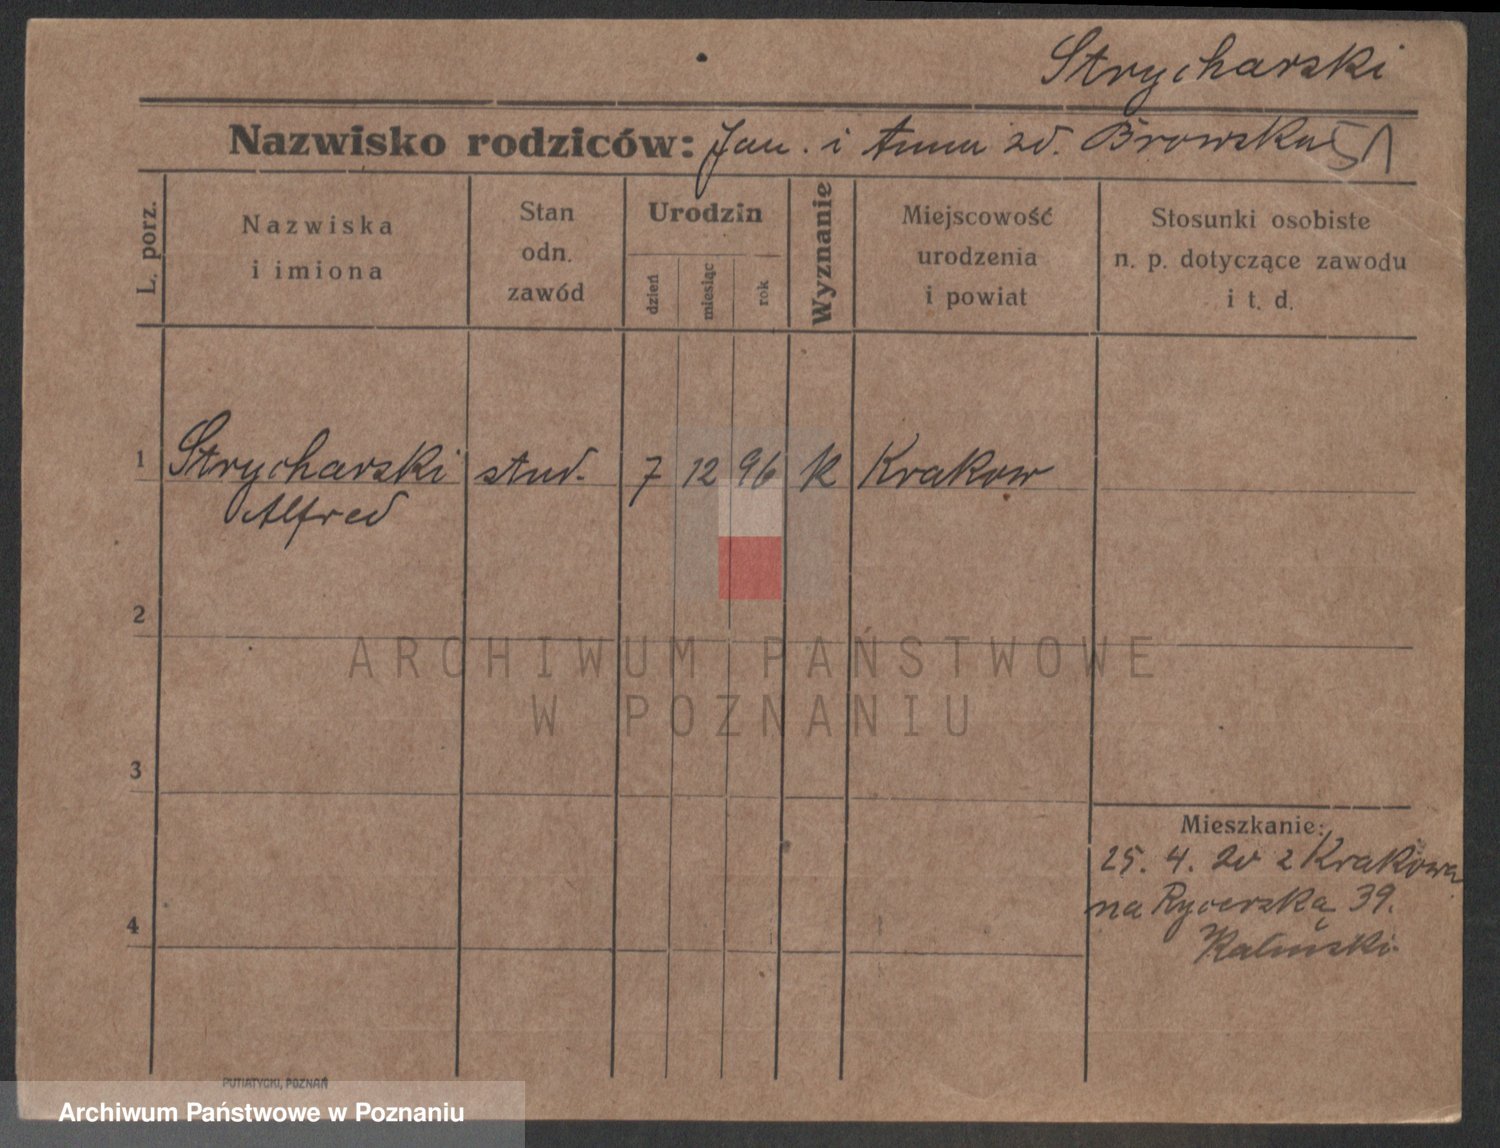 Strycharski
Nazwisko rodziców: Jan. i Anna zd. Browska
L. porz.
Nazwiska
i imiona
Stan
odn.
zawód
Urodzin
dzień
miesiąc
rok
Wyznanie
Miejscowość
urodzenia
i powiat
Stosunki osobiste
n. p. dotyczące zawodu
i t. d.
1 Strycharski stud. 7 12 96 k Krakow
Alfred
2
ARCHIWUM PAŃSTWOWE
W POZNANIU
3
Mieszkanie:
25. 4. 20 z Krakowa
na Rycerską 39.
4
PUTIATYCKI, POZNAŃ
Archiwum Państwowe w Poznaniu